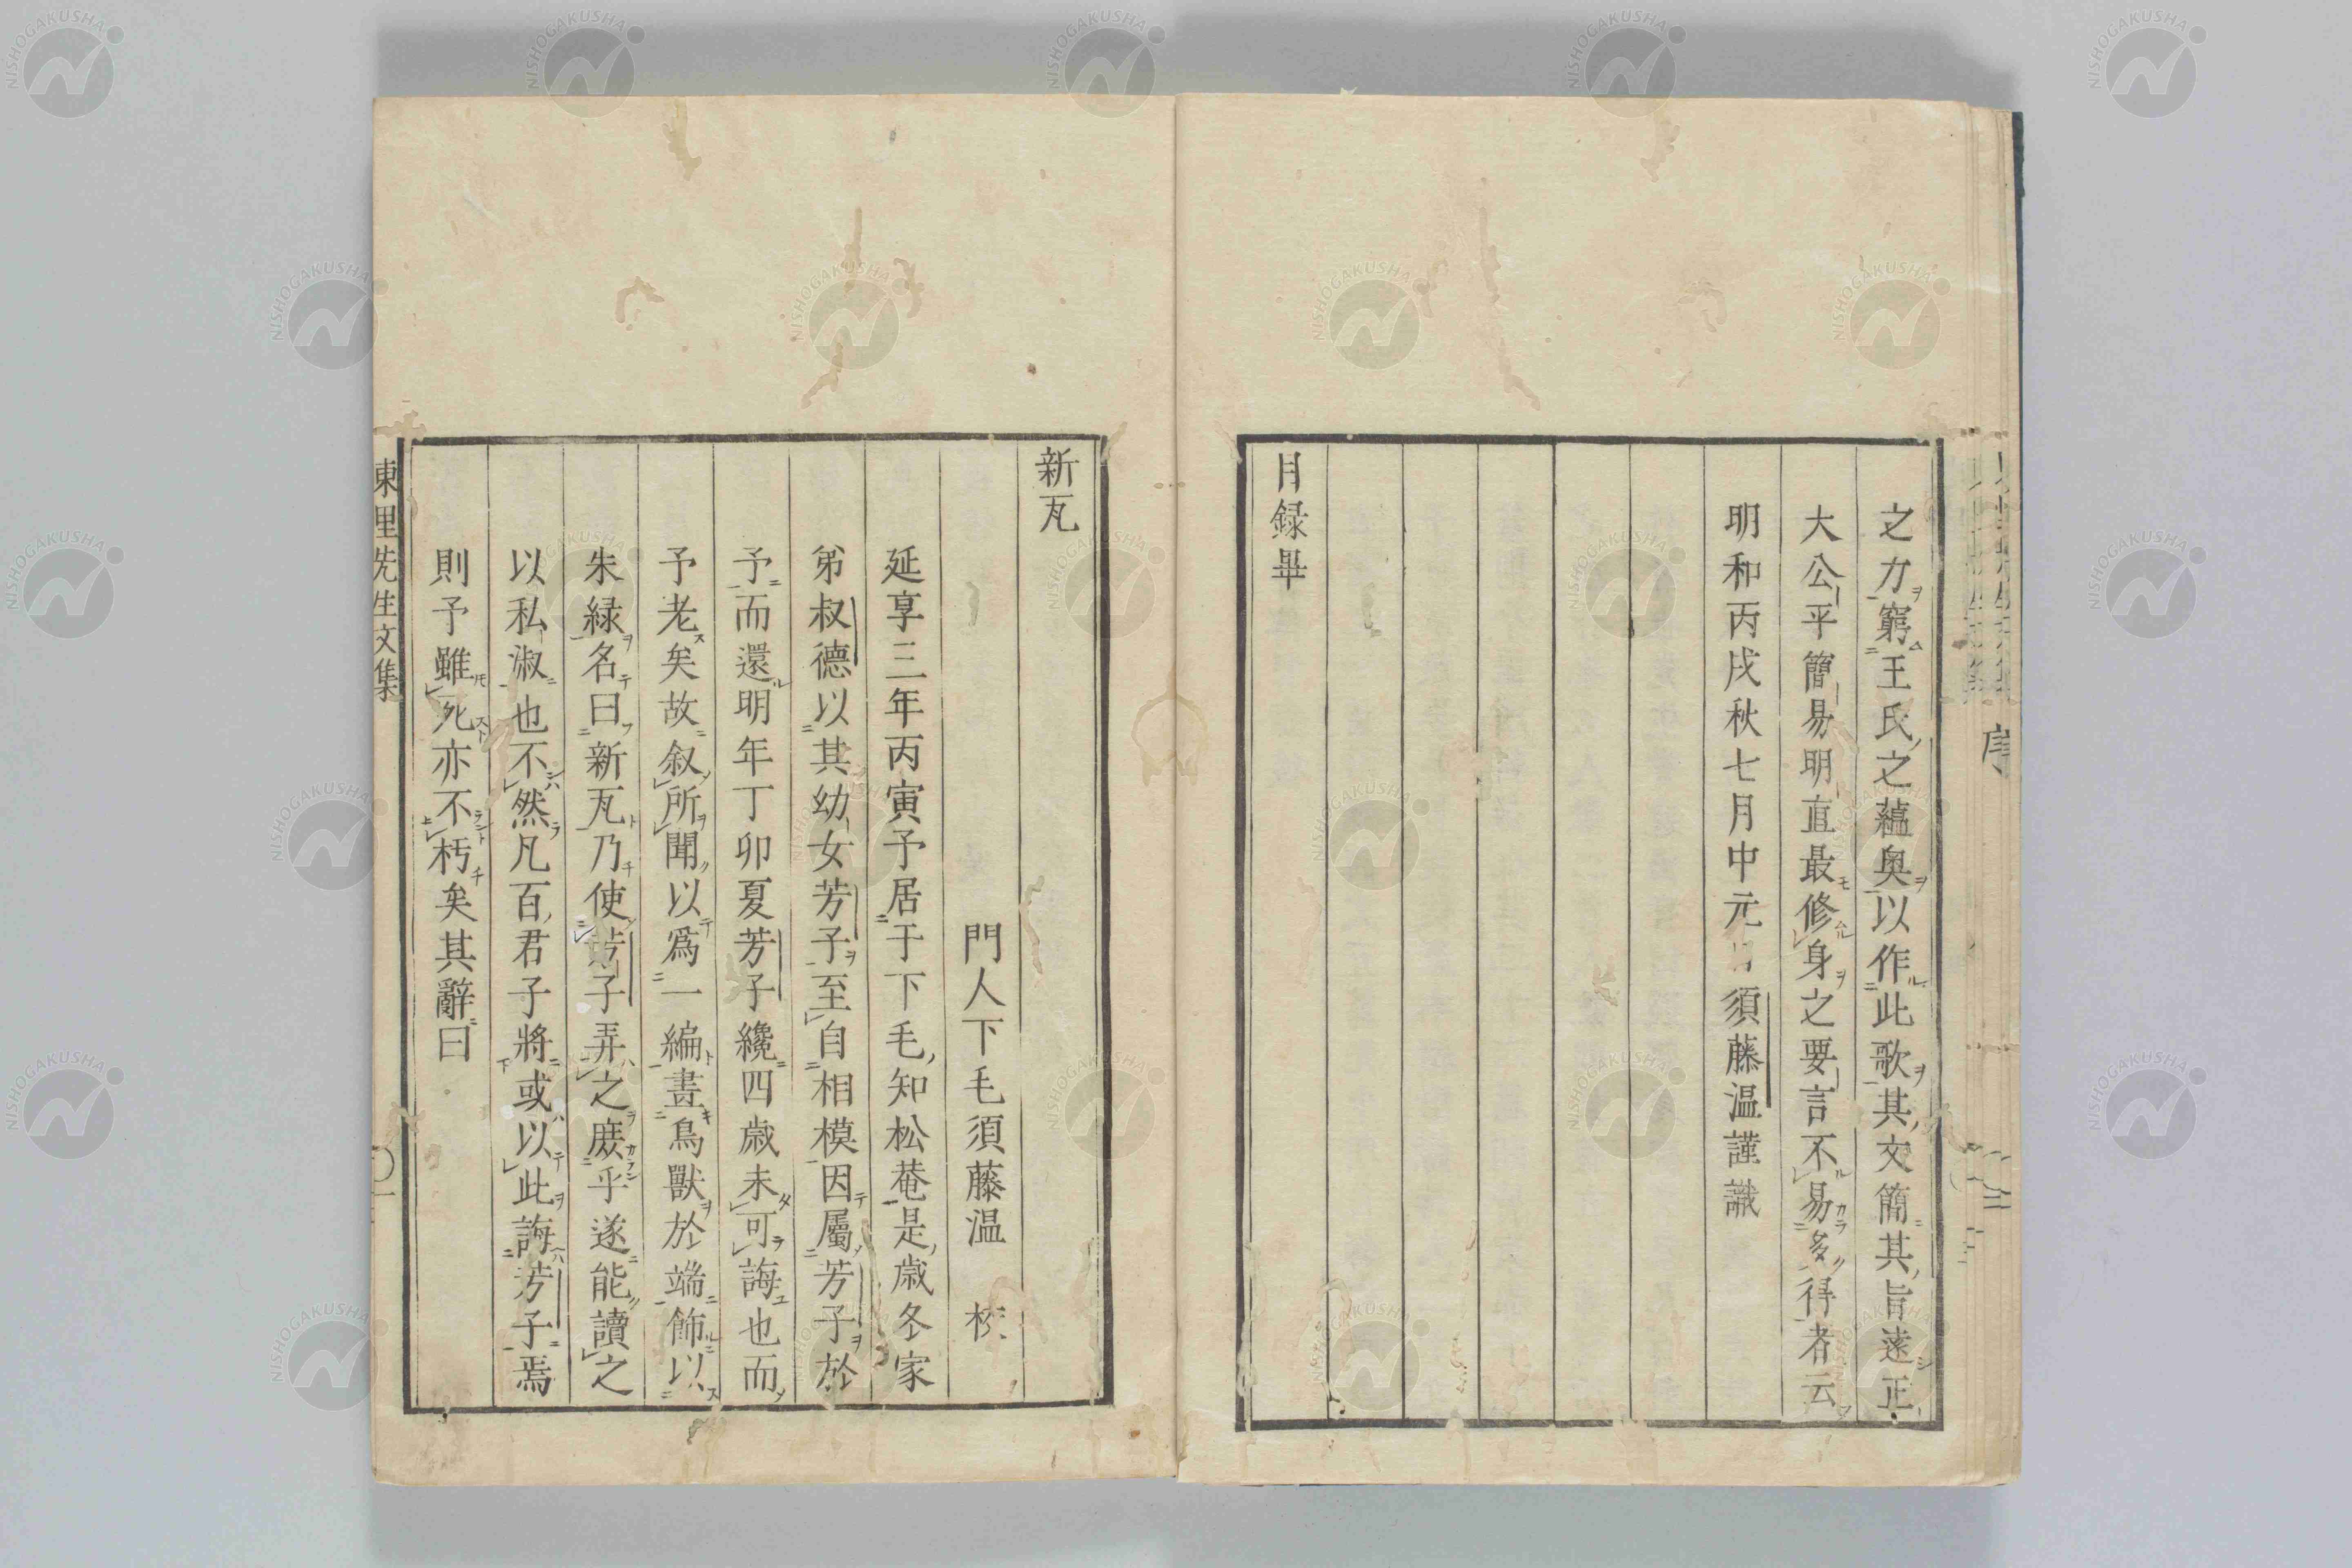 之力窮王氏之蘊奥以作此歌其文簡其旨遠正
大公平簡易明直最修身之要言不易多得者云
明和丙戌秋七月中元日須藤温謹識
目録畢
序
新瓦
門人下毛須藤温 校
延享三年丙寅予居于下毛知松菴是歳冬家
弟叔德以其幼女芳子至自相模因屬芳子於
予而還明年丁卯夏芳子纔四歳未可誨也而
予老矣故叙所聞以爲一編畫鳥獸於端飾以
朱緑名曰新瓦乃使芳子弄之庶乎遂能讀之
以私淑也不然凡百君子將或以此誨芳子焉
則予雖死亦不朽矣其辭曰
東里先生文集
NISHOGAKUSHA